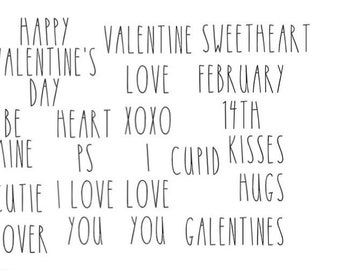 HAPPY
VALENTINE'S
DAY
VALENTINE SWEETHEART
LOVE FEBRUARY
14TH
BE
MINE
HEART XOXO
PS I CUPID KISSES
HUGS
CUTIE I LOVE LOVE
YOU YOU GALENTINES